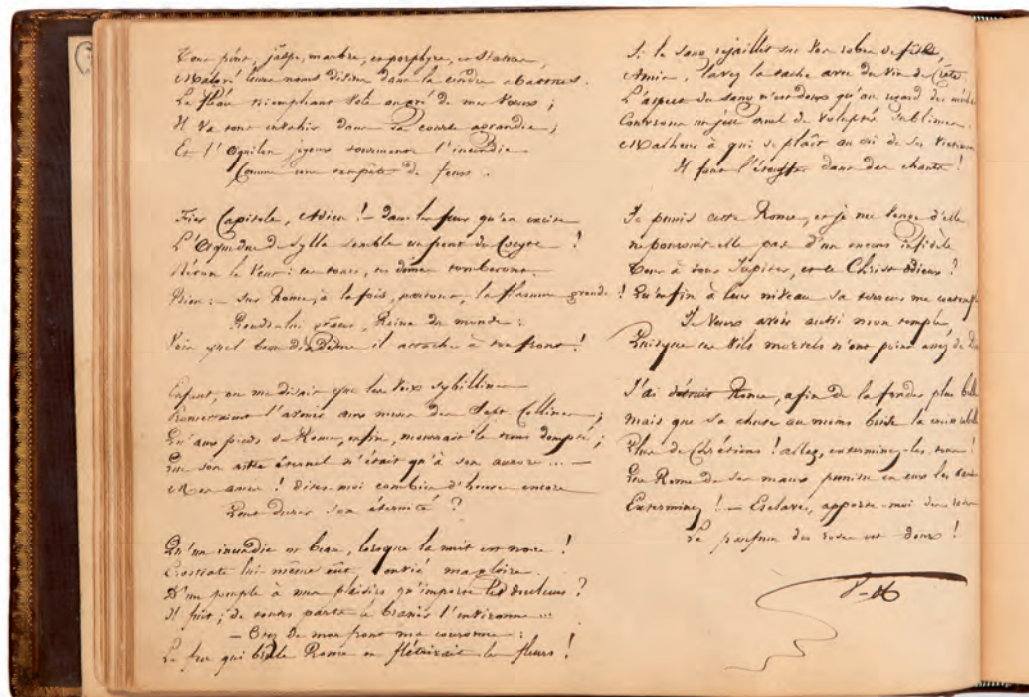 Tout périt, jaspe, marbre, et porphyre, et statues,
Malgré leurs noms divins dans la cendre abattues.
Le fléau triomphant vole au gré de mes vœux ;
Il va tout envahir dans sa course agrandie ;
Et l'Aquilon joyeux tourmente l'incendie
Comme une tempête de feux.
Fier Capitole, Adieu ! — dans les feux qu'on excite
L'Aqueduc de Sylla semble un pont du Cocyte !
Néron le veut : ces tours, ces dômes tomberont.
Bien : — sur Rome, à la fois, partout, la flamme gronde !
Rends-lui grâces, Reine du monde :
Vois quel beau diadême il attache à ton front !
Enfant, on me disait que les voix sybillines
Promettaient l'avenir aux murs des Sept Collines ;
Qu'aux pieds de Rome, enfin, mourrait le temps dompté ;
Que son astre éternel n'était qu'à son aurore ... —
Mes amis ! dites-moi combien d'heures encore
Peut durer son éternité ?
Qu'un incendie est beau, lorsque la nuit est noire !
Erostrate lui même eût envié ma gloire.
D'un peuple à mes plaisirs qu'importe les douleurs ?
Il fuit ; de toutes parts le brasier l'environne ...
— Otez de mon front ma couronne :
Le feu qui brûle Rome en flétrirait les fleurs !
Si le sang rejaillit sur vos robes de fête,
Amis, lavez la tache avec du vin de Crète
L'aspect du sang n'est doux qu'au regard des
Couvrons un jeu cruel de voluptés sublimes.
Malheur à qui se plaît au cri de ses victimes
Il faut l'étouffer dans des chants !
Je punis cette Rome, et je me venge d'elle
ne poursuit-elle pas d'un encens infidèle
Tour à tour Jupiter, et ce Christ odieux ?
Qu'enfin à leur niveau sa terreur me
Je veux avoir aussi mon temple,
Puisque ces vils mortels n'ont point assez de
J'ai détruit Rome, afin de la fonder plus belle
mais que sa chute au moins brise la croix
Plus de Chrétiens ! allez, exterminez-les tous !
Que Rome de ses maux punisse en eux les
Exterminez ! — Esclave, apporte-moi des roses
Le parfum des roses est doux !